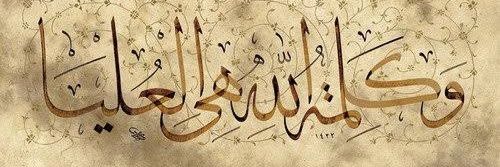 وَكَلِمَةُ اللهِ هِيَ الْعُلْيَا
١٤٣٢